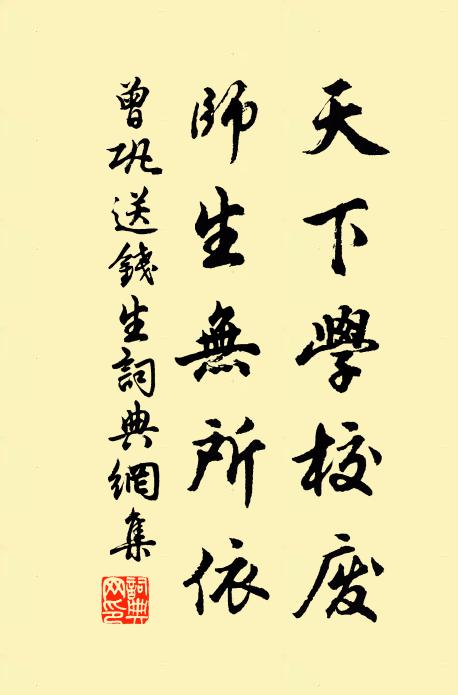 天下學校廢
師生無所依
曾巩送錢生詞典網集
詞典網印